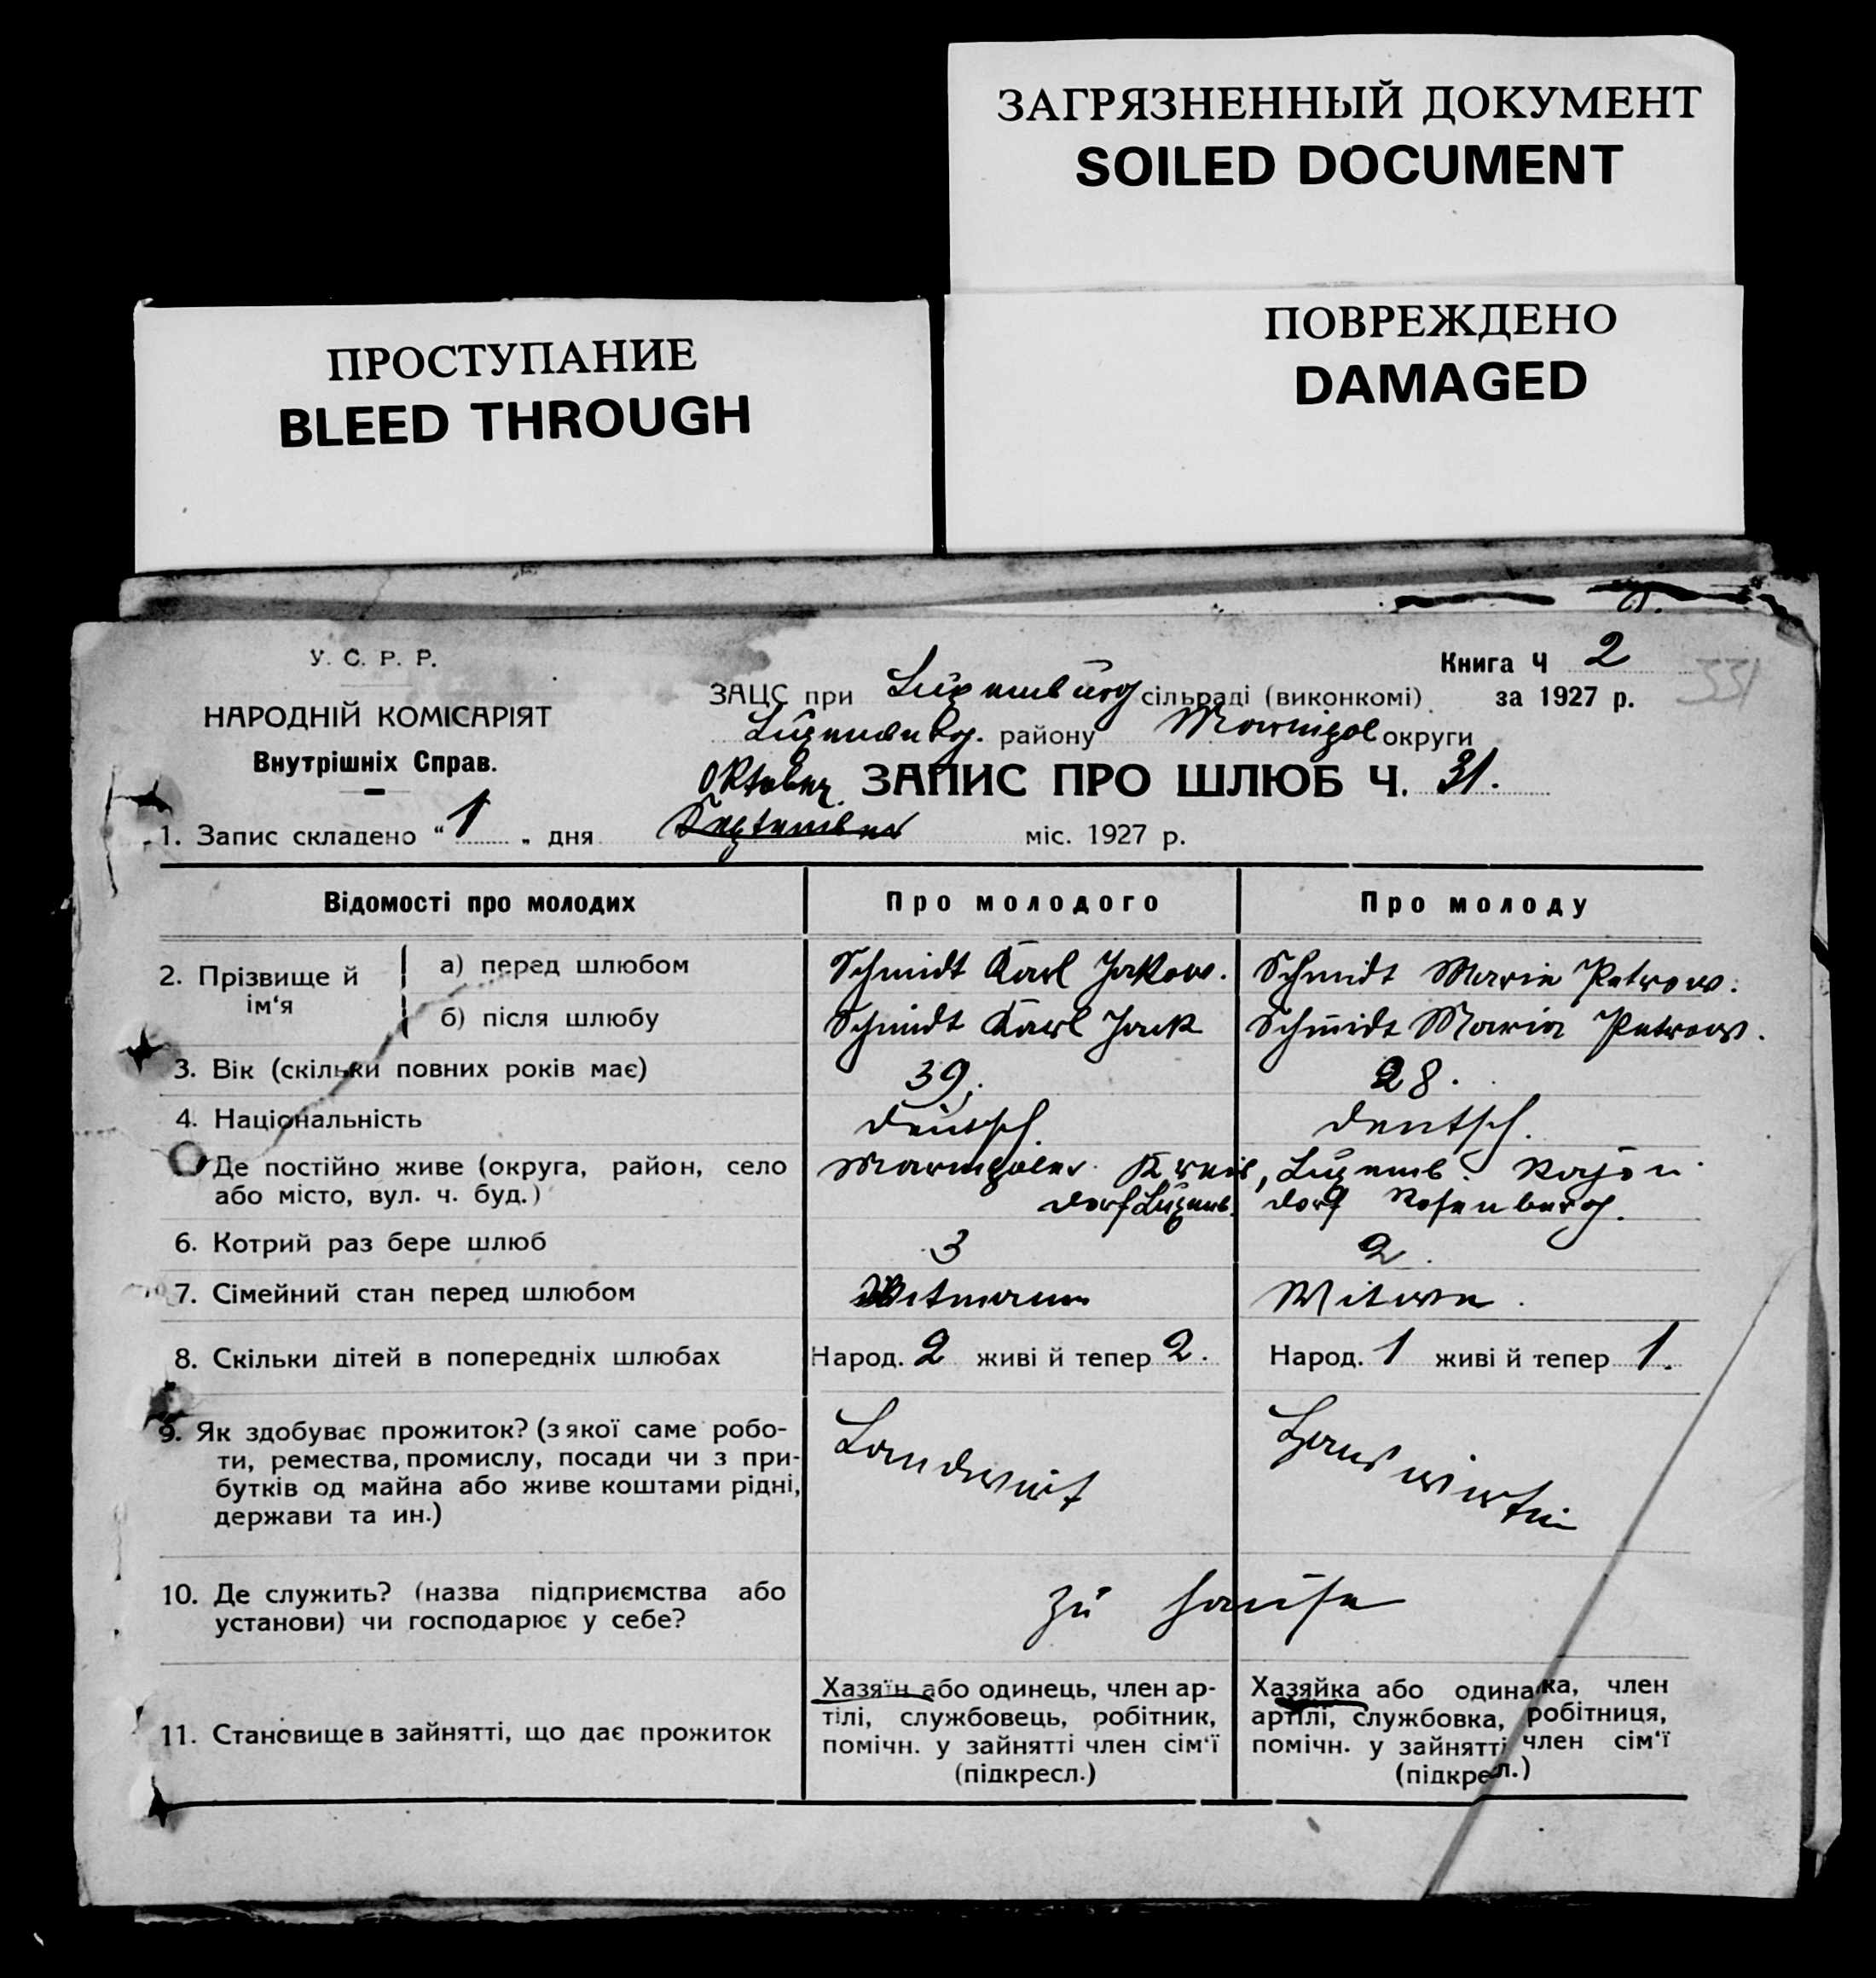 ЗАГРЯЗНЕННЫЙ ДОКУМЕНТ
SOILED DOCUMENT
ПРОСТУПАНИЕ
BLEED THROUGH
ПОВРЕЖДЕНО
DAMAGED
У. С. Р. Р.
НАРОДНІЙ КОМІСАРІЯТ
Внутрішніх Справ.
Книга Ч 2
331
ЗАЦС при Luxemburg сільраді (виконкомі) за 1927 р.
Luxemburg. району Mariupol округи
Oktober. ЗАПИС ПРО ШЛЮБ Ч. 31.
1. Запис складено “ 1 „ дня September міс. 1927 р.
Відомості про молодих Про молодого Про молоду
2. Прізвище й ім‘я
а) перед шлюбом Schmidt Karl Jakow. Schmidt Maria Petrow.
б) після шлюбу Schmidt Karl Jack Schmidt Maria Petrow.
3. Вік (скільки повних років має) 39. 28.
4. Національність deutsch. deutsch.
Де постійно живе (округа, район, село Mariupoler Kreis, Luxemb. Rajon
або місто, вул. ч. буд.) dorf Luxemb. dorf Rosenberg.
6. Котрий раз бере шлюб 3 2.
7. Сімейний стан перед шлюбом Witmann Witwe.
8. Скільки дітей в попередніх шлюбах Народ. 2 живі й тепер 2. Народ. 1 живі й тепер 1.
9. Як здобуває прожиток? (з якої саме робо-
ти, ремества, промислу, посади чи з при-
бутків од майна або живе коштами рідні,
держави та ин.)
Landwirt Hauswirtin
10. Де служить? (назва підприємства або
установи) чи господарює у себе?
zu Hause
11. Становище в зайнятті, що дає прожиток
Хазяїн або одинець, член ар-
тілі, службовець, робітник,
помічн. у зайнятті член сім‘ї
(підкресл.)
Хазяйка або одиначка, член
артілі, службовка, робітниця,
помічн. у зайнятті член сім‘ї
(підкресл.)